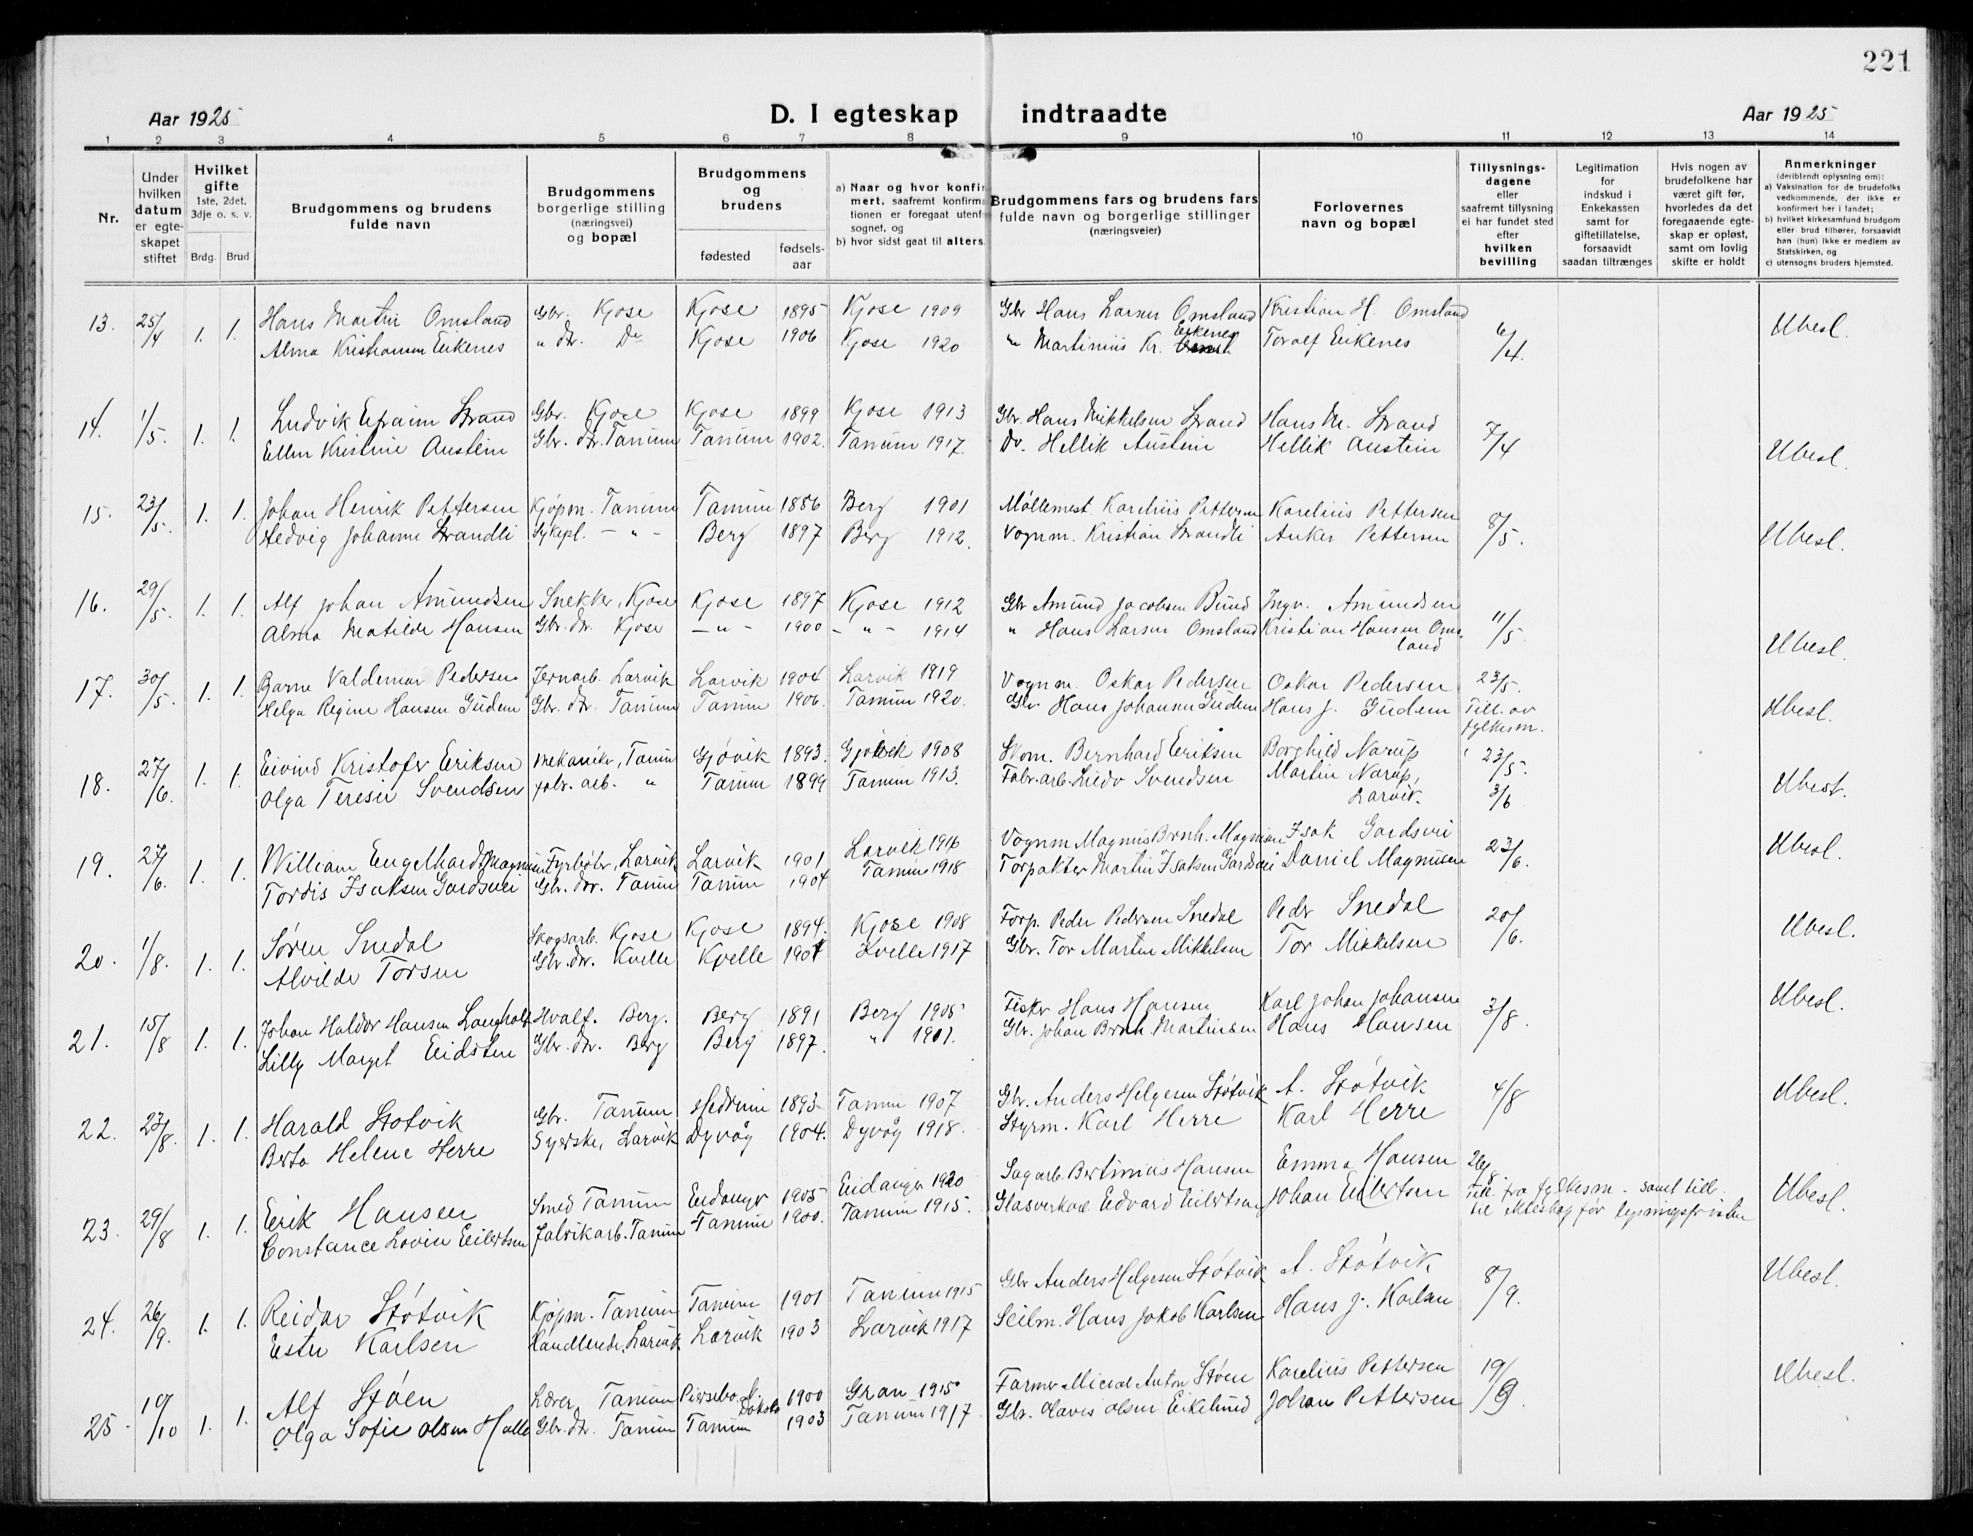 221
Aar 1925
D. I egteskap indtraadte
Aar 1925
1 2 3 4 5 6 7 8 9 10 11 12 13 14
Nr.
Under hvilken datum er egteskapet stiftet
Hvilket gifte 1ste, 2det, 3dje o. s. v.
Brdg. Brud
Brudgommens og brudens fulde navn
Brudgommens borgerlige stilling (næringsvei) og bopæl
Brudgommens og brudens
fødested
fødselsaar
a) Naar og hvor konfirmert, saafremt konfirmationen er foregaat utenfor sognet, og
b) hvor sidst gaat til alters.
Brudgommens fars og brudens fars fulde navn og borgerlige stillinger (næringsveier)
Forlovernes navn og bopæl
Tillysningsdagene eller saafremt tillysning ei har fundet sted efter hvilken bevilling
Legitimation for indskud i Enkekassen samt for giftetillatelse, forsaavidt saadan tiltrænges
Hvis nogen av brudefolkene har været gift før, hvorledes da det foregaaende egteskap er opløst, samt om lovlig skifte er holdt
Anmerkninger (deriblendt oplysning om):
a) Vaksination for de brudefolks vedkommende, der ikke er konfirmert her i landet;
b) hvilket kirkesamfund brudgom eller brud tilhører, forsaavidt han (hun) ikke er medlem av Statskirken, og
c) utensogns bruders hjemsted.
13. 25/4 1. 1. Hans Martin Omsland Gbr. Kjose Kjose 1895 Kjose 1909 Gbr Hans Larsen Omsland Kristian H. Omsland 6/4. Ubesl.
Alma Kristiansen Eikenes " dtr. Do Kjose 1906 Kjose 1920 " Martinius Kr. Eikenes Toralf Eikenes
14. 1/5. 1. 1. Ludvik Efraim Strand Gbr. Kjose Kjose 1899 Kjose 1913 Gbr Hans Mikkelsen Strand Hans M. Strand 7/4 Ubesl.
Ellen Kristine Austein Gbr. dtr. Tanum Tanum 1902. Tanum 1917. Do. Hellik Austein Hellik Austein
15. 23/5. 1. 1. Johan Henrik Pettersen Kjøpm. Tanum Tanum 1886 Berg 1901 Møllemest Karelius Pettersen Karelius Pettersen 8/5. Ubesl.
Hedvig Johanne Strandli Sykepl. - " - Berg 1897 Berg 1912. Vognm. Kristian Strandli Anker Pettersen
16. 29/5. 1. 1. Alf Johan Amundsen Snekker, Kjose Kjose 1897 Kjose 1912 Gbr Amund Jacobsen Bund Ingv. Amundsen 11/5. Ubesl.
Alma Matilde Hansen Gbr. dtr. Kjose - " - 1900 - " - 1914 " Hans Larsen Omsland Kristian Hansen Omsland
17. 30/5. 1. 1. Barne Valdemar Pedersen Jernarb. Larvik Larvik 1904 Larvik 1919 Vognm. Oskar Pedersen Oskar Pedersen 23/5. Ubesl.
Helga Regine Hansen Gudem Gbr. dtr. Tanum Tanum 1906. Tanum 1920. Gbr Hans Johansen Gudem Hans J. Gudem Till. av fylkesm.
18. 27/6. 1. 1. Eivind Kristofer Eriksen Mekaniker, Tanum Gjøvik 1893. Gjøvik 1908 Skom. Bernhard Eriksen Borghild Narup 23/5. Ubesl.
Olga Terese Svendsen fabr. arb. " Tanum 1899 Tanum 1913. Fabr. arb. Ludv Svendsen Martin Narup, Larvik. 3/6
19. 27/6. 1. 1. William Engelhardt Magnussen Fyrbøter, Larvik Larvik 1901 Larvik 1916 Vognm Magnus Brnh. Magnussen Isak Gardsvei 23/6. Ubesl.
Tordis Isaksen Gardsvei Gbr. dtr. Tanum Tanum 1904 Tanum 1918 Torpakter Martin Isaksen Gardsvei Daniel Magnussen
20. 1/8. 1. 1. Søren Snedal Skogsarb. Kjose Kjose 1894. Kjose 1908 Forp. Peder Pedersen Snedal Peder Snedal 20/6. Ubesl.
Alvilde Torsen Gbr. dtr. Kvelle Kvelle 1901 Kvelle 1917 Gbr. Tor Martin Mikkelsen Tor Mikkelsen
21. 15/8 1. 1. Johan Haldor Hansen Langholt Hvalf. Berg. Berg 1891 Berg 1905 Fisker Hans Hansen Karl Johan Johansen 3/8. Ubesl.
Lilly Marget Eidsten Gbr. dtr. Berg Berg 1897. " 1901. Gbr. Johan Brnh. Martinsen Hans Hansen
22. 23/8. 1. 1. Harald Støtvik Gbr. Tanum Hedrum 1893 Tanum 1907 Gbr. Anders Helgesen Støtvik A. Støtvik 4/8 Ubesl.
Berta Helene Herre Syerske, Larvik Dyvåg 1904. Dyvåg 1918. Styrm. Karl Herre Karl Herre
23. 29/8 1. 1. Eirik Hansen Smed Tanum Eidanger 1905 Eidanger 1920 Sagarb. Bertinius Hansen Emma Hansen 26/8 Ubesl.
Constance Lovise Eilertsen Fabrikarb. Tanum Tanum 1900. Tanum 1915. Glasverkarb Edvard Eilertsen Johan Eilertsen Till. fra fylkesm. samt till. til ekteskap før lysningsfristen
24. 26/9. 1. 1. Reidar Støtvik Kjøpm. Tanum Tanum 1901 Tanum 1915 Gbr Anders Helgesen Støtvik A. Støtvik 8/9. Ubesl.
Ester Karlsen Handlende, Larvik Larvik 1903 Larvik 1917 Seilm. Hans Jakob Karlsen Hans J. Karlsen
25. 10/10 1. 1. Alf Støen Lærer Tanum Piersebo N. Dakota 1900 Gran 1915 Farmer Micael Anton Støen Karelius Pettersen 19/9 Ubesl.
Olga Sofie Olsen Halle Gbr. dtr. Tanum Tanum 1903 Tanum 1917 Gbr. Olavis Olsen Eikelund Johan Pettersen